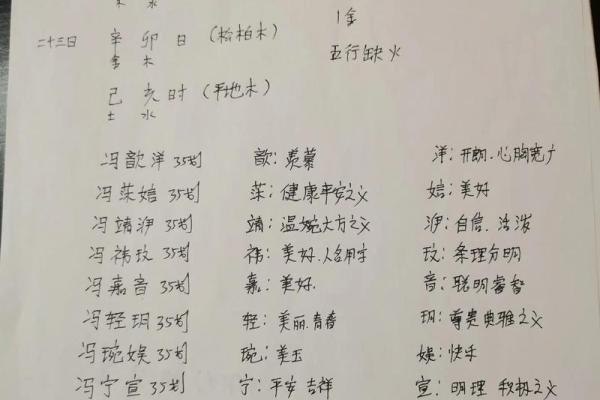 1金
二十三日 辛卯日（松柏木）
金 木 五行缺火
己亥时（平地木）
土 水
冯歆洋 35划 歆：羡慕 洋：开朗.心胸宽广
冯荣婄 35划 荣：健康平安之义 婄：美好
冯靖洢 35划 靖：温婉大方之义 洢：自信.活泼
冯祎玟 35划 祎：美好.人名用字 玟：条理分明
冯嘉音 35划 嘉：美好. 音：聪明睿智
冯轻玥 35划 轻：美丽.青春 玥：尊贵典雅之义
冯琬娱 35划 琬：美玉 娱：快乐
冯宁宣 35划 宁：平安 吉祥 宣：明理 积极之义